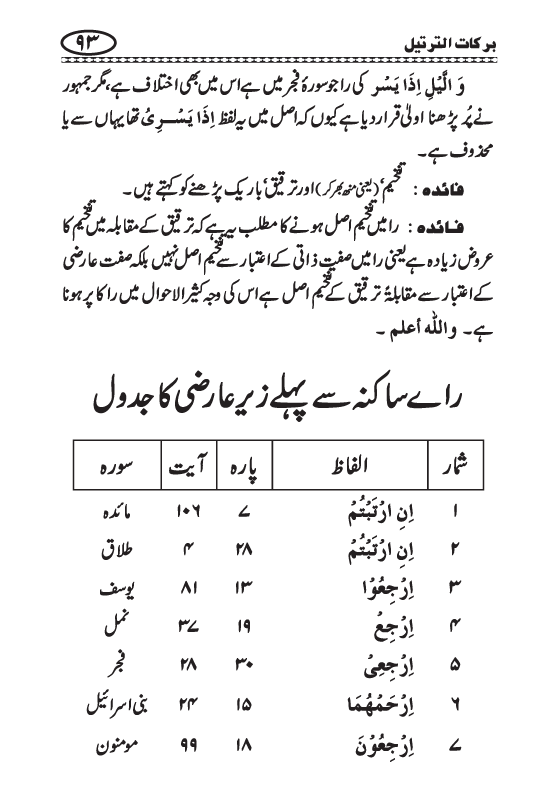 برکات الترتیل ۹۳
وَ الَّیْلِ اِذَا یَسْر کی را جو سورۂ فجر میں ہے اس میں بھی اختلاف ہے، مگر جمہور
نے پُر پڑھنا اولیٰ قرار دیا ہے کیوں کہ اصل میں یہ لفظ اِذَا یَسْــرِیْ تھا یہاں سے یا
محذوف ہے۔
فائدہ : تفخیم، (یعنی منھ بھر کر) اور ترقیق، باریک پڑھنے کو کہتے ہیں ۔
فائدہ : را میں تفخیم اصل ہونے کا مطلب یہ ہے کہ ترقیق کے مقابلہ میں تفخیم کا
عروض زیادہ ہے یعنی را میں صفتِ ذاتی کے اعتبار سے تفخیم اصل نہیں بلکہ صفت عارضی
کے اعتبار سے مقابلۃً ترقیق کے تفخیم اصل ہے اس کی وجہ کثیر الاحوال میں را کا پر ہونا
ہے۔ واللہ أعلم ۔
راے ساکنہ سے پہلے زیرِ عارضی کا جدول
شمار الفاظ پارہ آیت سورہ
۱ اِنِ ارْتَبْتُمْ ۷ ۱۰۶ مائدہ
۲ اِنِ ارْتَبْتُمْ ۲۸ ۴ طلاق
۳ اِرْجِعُوْا ۱۳ ۸۱ یوسف
۴ اِرْجِعْ ۱۹ ۳۷ نمل
۵ اِرْجِعِیْ ۳۰ ۲۸ فجر
۶ اِرْحَمْهُمَا ۱۵ ۲۴ بنی اسرائیل
۷ اِرْجِعُوْنَ ۱۸ ۹۹ مومنون